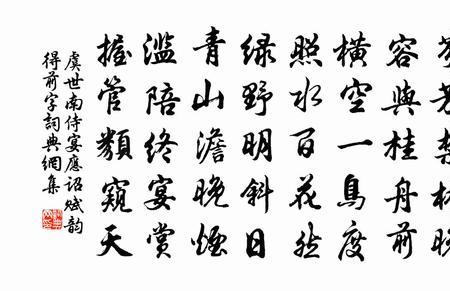 芬芳禁林晚
容與桂舟前
橫空一鳥度
照水百花然
綠野明斜日
青山澹晚煙
濫陪終宴賞
握管類窺天
虞世南侍宴應詔賦韵
得前字詞典網集